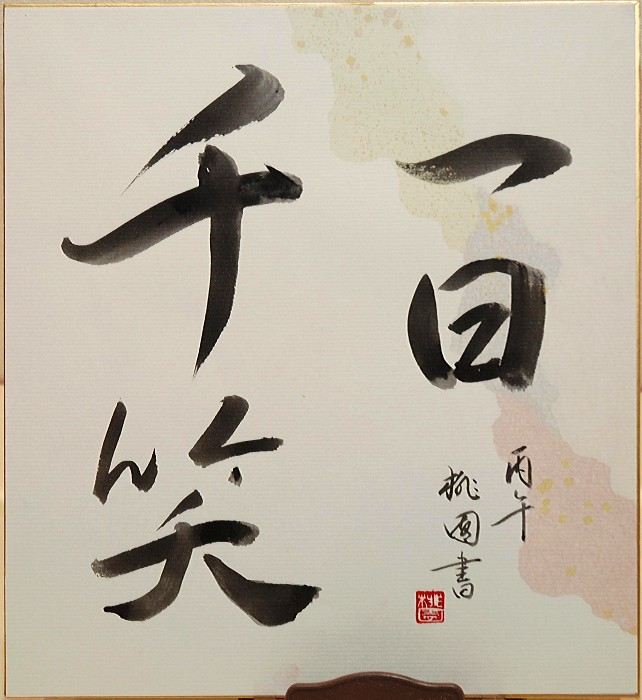 一日
千笑
丙午
桃園書